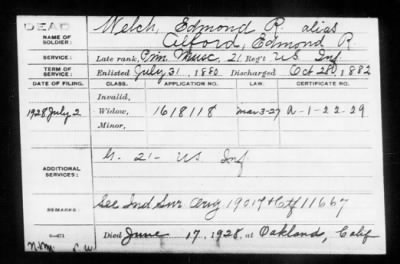 DEAD
NAME OF SOLDIER: Welch, Edmond R. alias
Alford, Edmond R
SERVICE: Late rank, Pvt Music, 21 Reg't US Inf.
TERM OF SERVICE: Enlisted July 31, 1880 Discharged Oct 28, 1882
DATE OF FILING. CLASS. APPLICATION NO. LAW. CERTIFICATE NO.
Invalid,
1928 July 2 Widow, 1618118 Mar 3-27 A-1-22-29
Minor,
ADDITIONAL SERVICES: G. 21- US Inf
REMARKS: See Ind Sur Orig 19017 + Ctf 11667
Died June 17, 1928, at Oakland, Calif